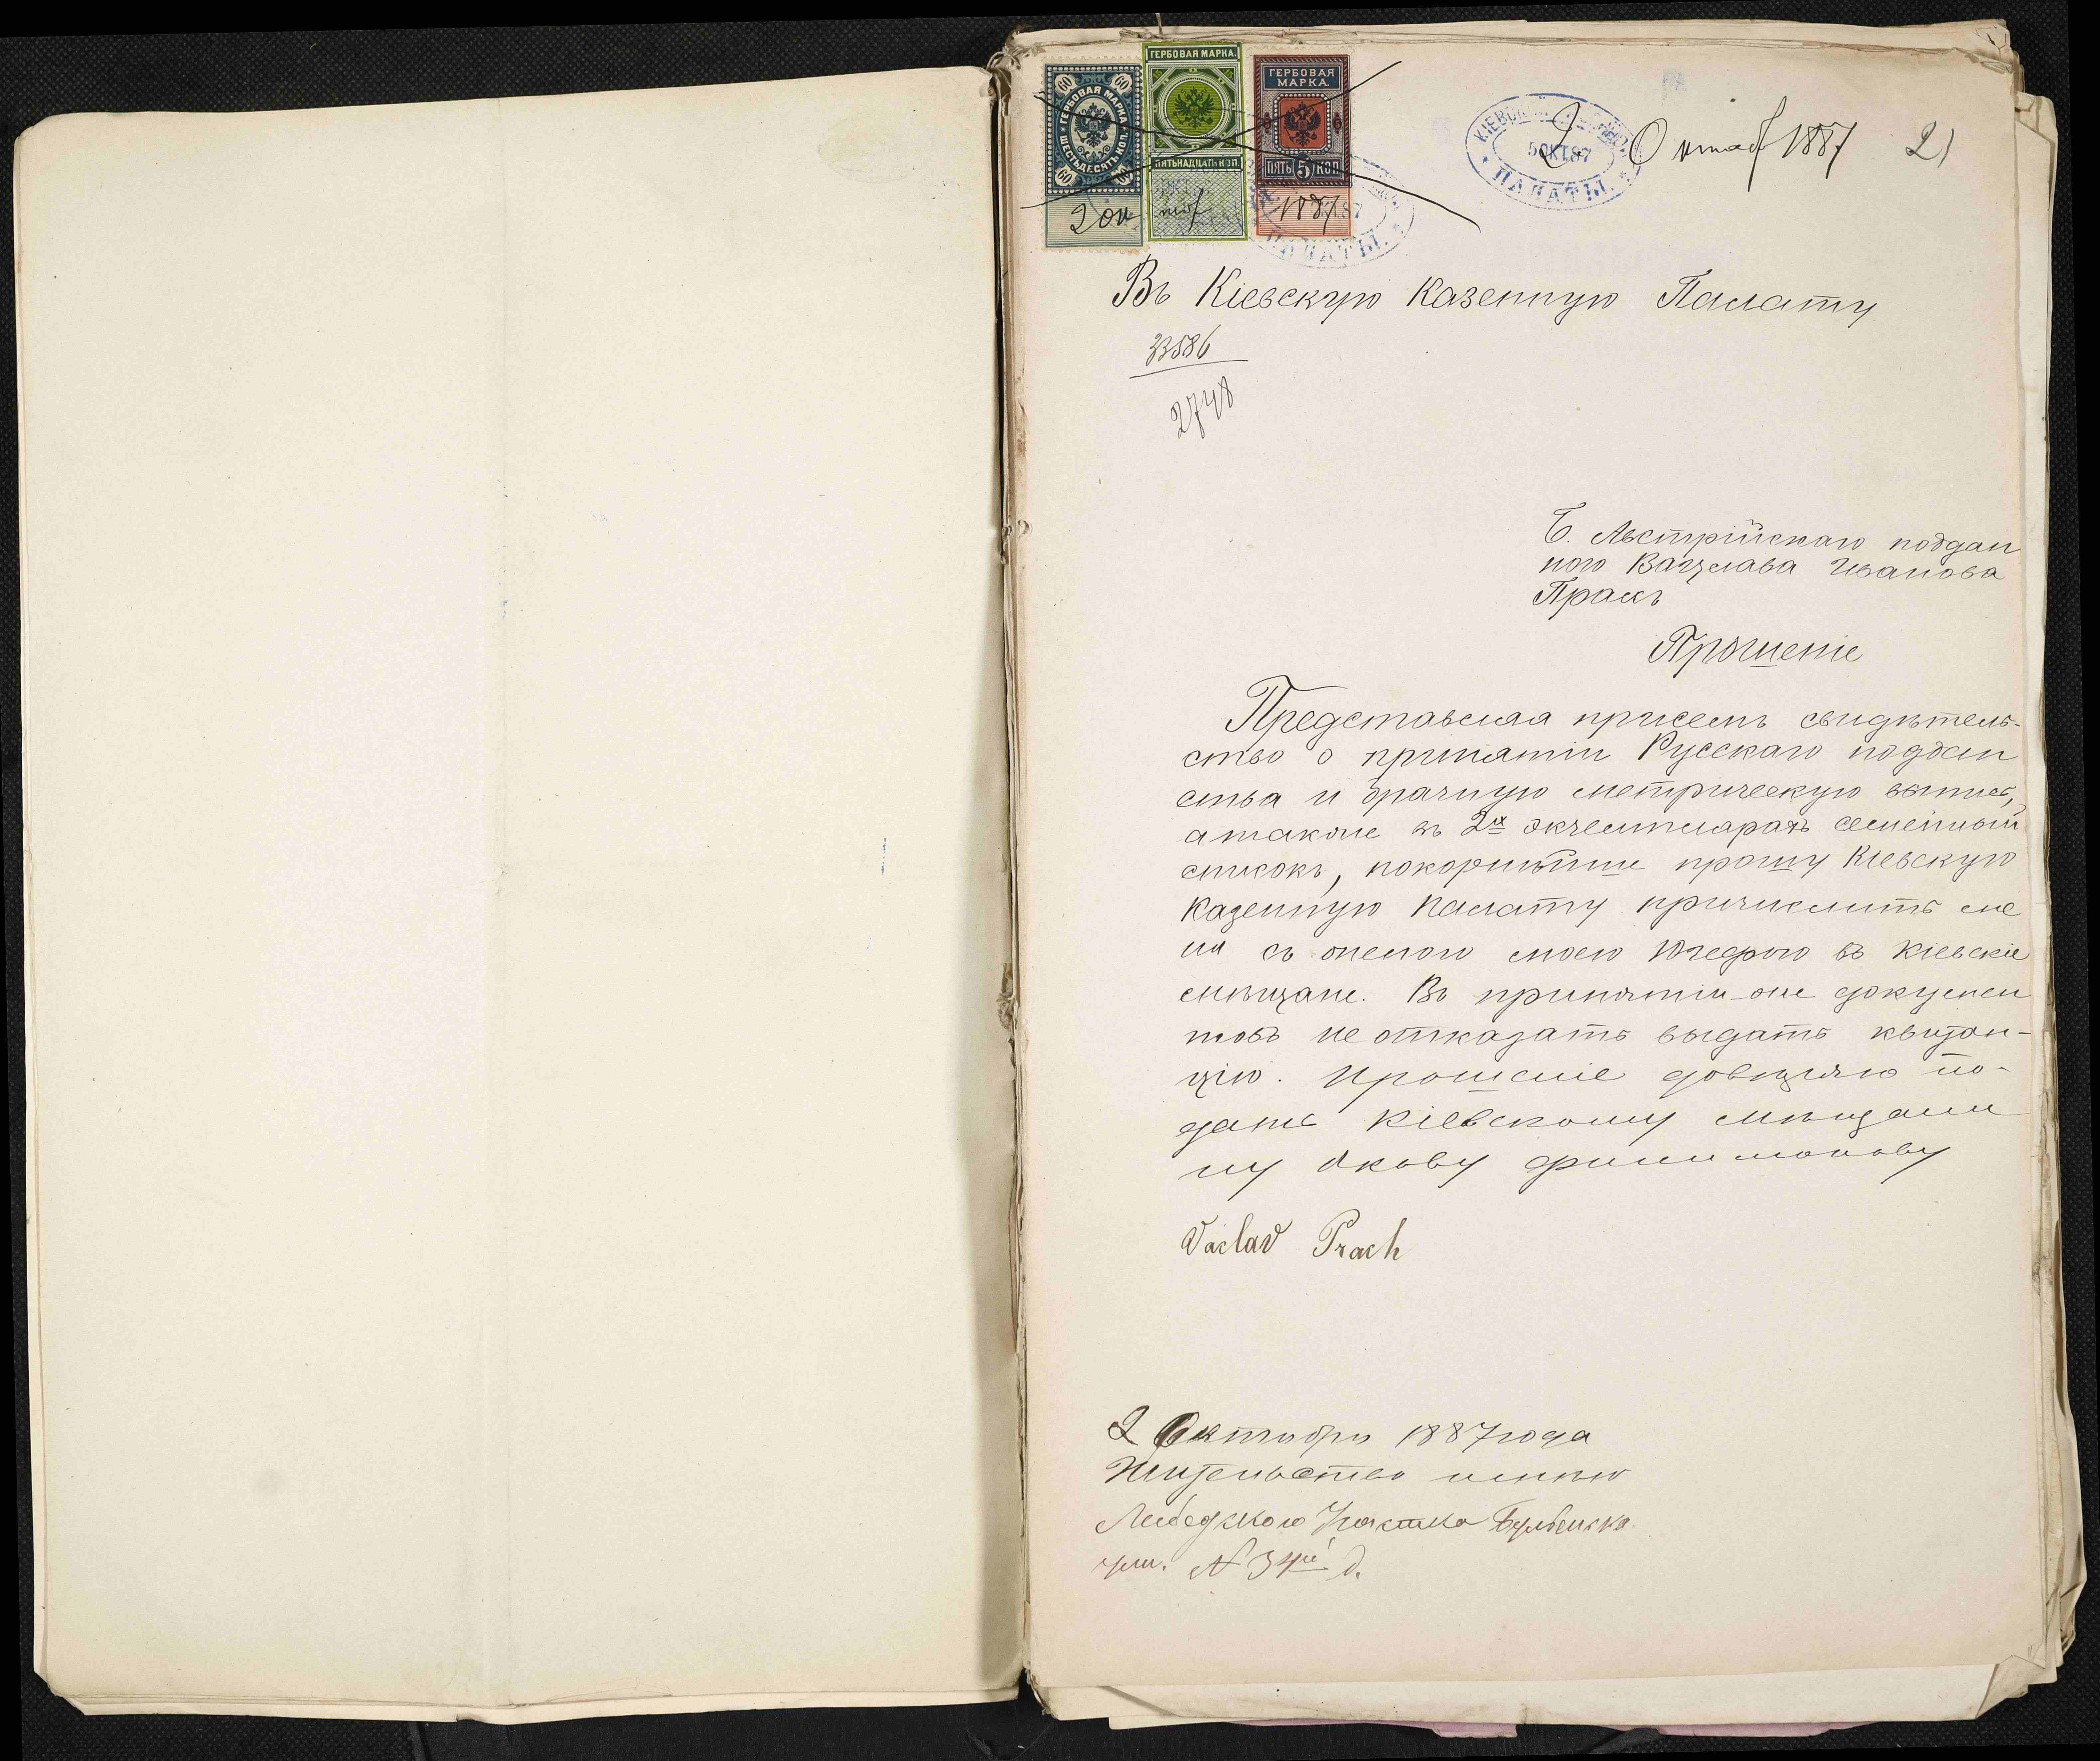 60 60
ГЕРБОВАЯ МАРКА
ШЕСТЬДЕСЯТЪ КОП.
60 60
2 ок
ГЕРБОВАЯ МАРКА.
ПЯТЬНАДЦАТЬ КОП.
тоб
ГЕРБОВАЯ
МАРКА.
ПЯТЬ 5 КОП
1887
ПАЛАТЫ.
КІЕВСКОЙ
5 ОКТ. 87
ПАЛАТЫ.
2 Октяб 1887
21
Въ Кіевскую Казенную Палату
33586
2748
Б. Австрійскаго поддан
ного Вацлава Иванова
Прахъ
Прошеніе
Представляя присемъ свидѣтель-
ство о принятіи Русскаго поддан
ства и брачную метрическую выпись,
атакже въ 2хъ экземплярахъ семейный
списокъ, покорнѣйше прошу Кіевскую
Казенную Палату причислить ме
ня съ женою моею Юзефою въ Кіевскіе
мѣщане. Въ принятіи-же докумен
товъ не отказать выдать квитан-
цію. Прошеніе довѣряю по-
дать Кіевскому мѣщани
ну Якову Филимонову
Vaclav Prach
2 Октября 1887 года
Жительство имѣю
Лыбедского Участка
ули. № 34й д.